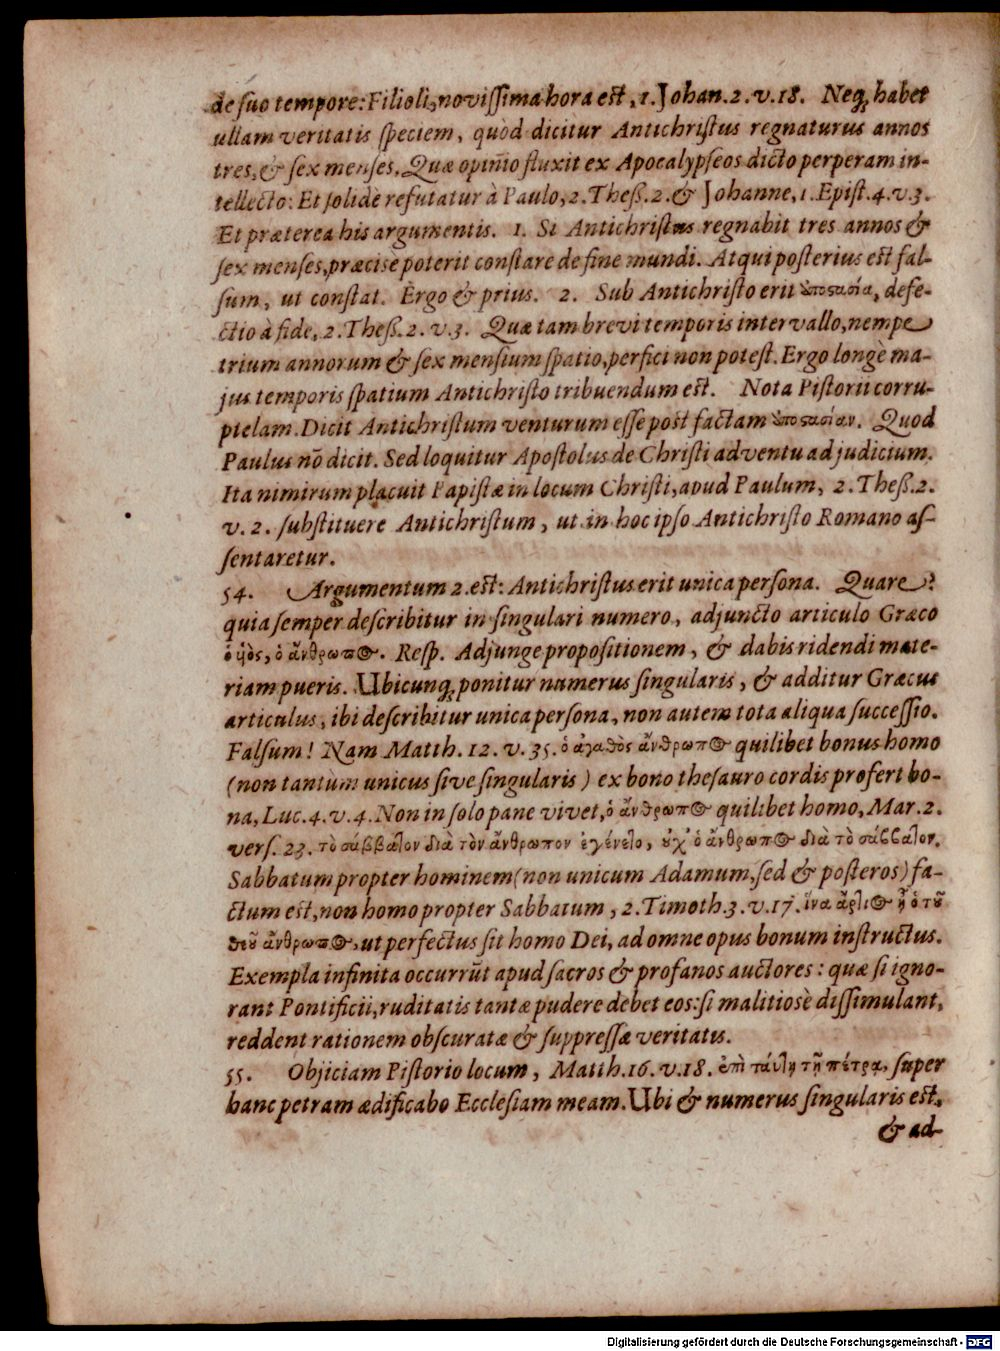 de suo tempore: Filioli, novissima hora est, 1. Johan. 2. v. 18. Neq; habet
ullam veritatis speciem, quòd dicitur Antichristus regnaturus annos
tres, & sex menses. Quæ opinio fluxit ex Apocalypseos dicto perperam in-
tellecto: Et solidè refutatur à Paulo, 2. Thess. 2. & Johanne, 1. Epist. 4. v. 3.
Et præterea his argumentis. 1. Si Antichristus regnabit tres annos &
sex menses, præcisè poterit constare de fine mundi. Atqui posterius est fal-
sum, ut constat. Ergo & prius. 2. Sub Antichristo erit ἀποστασία, defe-
ctio à fide, 2. Thess. 2. v. 3. Quæ tam brevi temporis intervallo, nempe
trium annorum & sex mensium spatio, perfici non potest. Ergo longè ma-
jus temporis spatium Antichristo tribuendum est. Nota Pistorii corru-
ptelam. Dicit Antichristum venturum esse post factam ἀποστασίαν. Quod
Paulus nō dicit. Sed loquitur Apostolus de Christi adventu ad judicium.
Ita nimirum placuit Papistæ in locum Christi, apud Paulum, 2. Thess. 2.
v. 2. substituere Antichristum, ut in hoc ipso Antichristo Romano as-
sentaretur.
54. Argumentum 2. est: Antichristus erit unica persona. Quare?
quia semper describitur in singulari numero, adjuncto articulo Græco
ὁ υἱὸς, ὁ ἄνθρωπος. Resp. Adjunge propositionem, & dabis ridendi mate-
riam pueris. Ubicunq; ponitur numerus singularis, & additur Græcus
articulus, ibi describitur unica persona, non autem tota aliqua successio.
Falsum! Nam Matth. 12. v. 35. ὁ ἀγαθὸς ἄνθρωπος quilibet bonus homo
(non tantùm unicus sive singularis) ex bono thesauro cordis profert bo-
na, Luc. 4. v. 4. Non in solo pane vivet, ὁ ἄνθρωπος quilibet homo, Mar. 2.
vers. 23. τὸ σάββατον διὰ τὸν ἄνθρωπον ἐγένετο, οὐχ' ὁ ἄνθρωπος διὰ τὸ σάββατον.
Sabbatum propter hominem (non unicum Adamum, sed & posteros) fa-
ctum est, non homo propter Sabbatum, 2. Timoth. 3. v. 17. ἵνα ἄρτιος ᾖ ὁ τοῦ
θεοῦ ἄνθρωπος, ut perfectus sit homo Dei, ad omne opus bonum instructus.
Exempla infinita occurrūt apud sacros & profanos auctores: quæ si igno-
rant Pontificii, ruditatis tantæ pudere debet eos: si malitiosè dissimulant,
reddent rationem obscuratæ & suppressæ veritatis.
55. Objiciam Pistorio locum, Matth. 16. v. 18. ἐπὶ ταύτῃ τῇ πέτρᾳ, super
hanc petram ædificabo Ecclesiam meam. Ubi & numerus singularis est,
& ad-
Digitalisierung gefördert durch die Deutsche Forschungsgemeinschaft - DFG